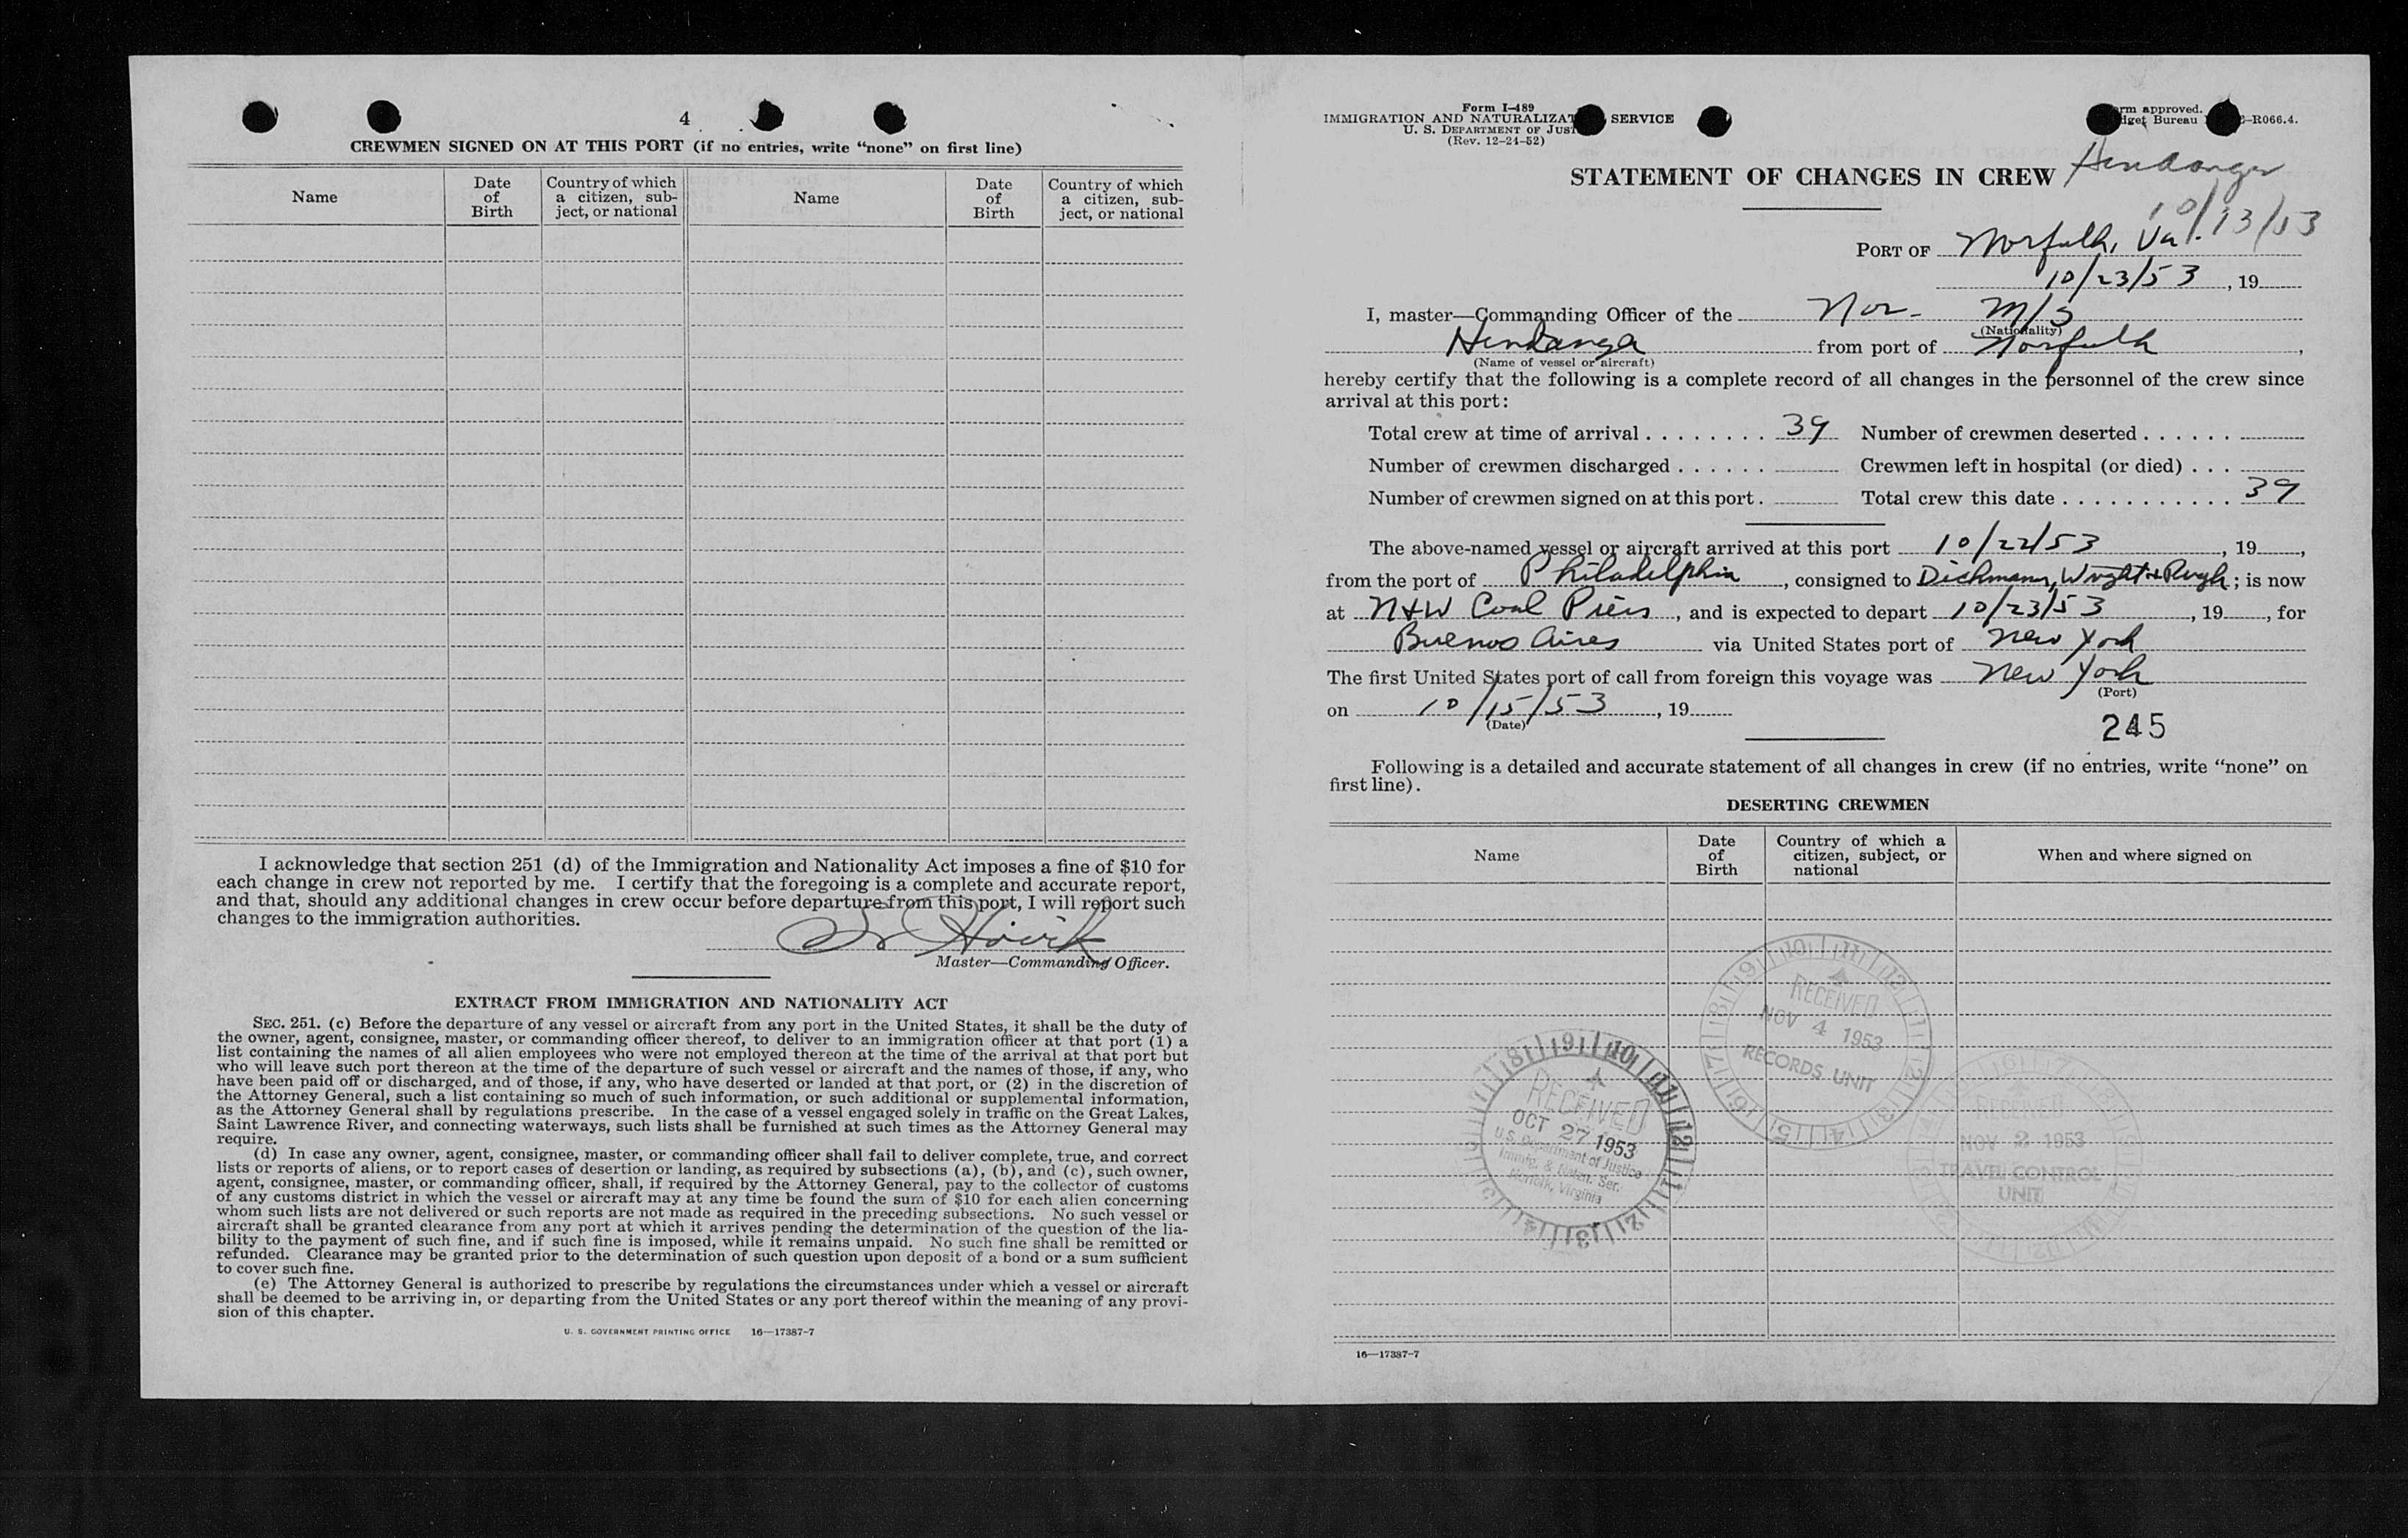 4
CREWMEN SIGNED ON AT THIS PORT (if no entries, write “none” on first line)
Name
Date of Birth
Country of which a citizen, subject, or national
Name
Date of Birth
Country of which a citizen, subject, or national
I acknowledge that section 251 (d) of the Immigration and Nationality Act imposes a fine of $10 for
each change in crew not reported by me. I certify that the foregoing is a complete and accurate report,
and that, should any additional changes in crew occur before departure from this port, I will report such
changes to the immigration authorities.
Master—Commanding Officer.
EXTRACT FROM IMMIGRATION AND NATIONALITY ACT
SEC. 251. (c) Before the departure of any vessel or aircraft from any port in the United States, it shall be the duty of
the owner, agent, consignee, master, or commanding officer thereof, to deliver to an immigration officer at that port (1) a
list containing the names of all alien employees who were not employed thereon at the time of the arrival at that port but
who will leave such port thereon at the time of the departure of such vessel or aircraft and the names of those, if any, who
have been paid off or discharged, and of those, if any, who have deserted or landed at that port, or (2) in the discretion of
the Attorney General, such a list containing so much of such information, or such additional or supplemental information,
as the Attorney General shall by regulations prescribe. In the case of a vessel engaged solely in traffic on the Great Lakes,
Saint Lawrence River, and connecting waterways, such lists shall be furnished at such times as the Attorney General may
require.
(d) In case any owner, agent, consignee, master, or commanding officer shall fail to deliver complete, true, and correct
lists or reports of aliens, or to report cases of desertion or landing, as required by subsections (a), (b), and (c), such owner,
agent, consignee, master, or commanding officer, shall, if required by the Attorney General, pay to the collector of customs
of any customs district in which the vessel or aircraft may at any time be found the sum of $10 for each alien concerning
whom such lists are not delivered or such reports are not made as required in the preceding subsections. No such vessel or
aircraft shall be granted clearance from any port at which it arrives pending the determination of the question of the lia-
bility to the payment of such fine, and if such fine is imposed, while it remains unpaid. No such fine shall be remitted or
refunded. Clearance may be granted prior to the determination of such question upon deposit of a bond or a sum sufficient
to cover such fine.
(e) The Attorney General is authorized to prescribe by regulations the circumstances under which a vessel or aircraft
shall be deemed to be arriving in, or departing from the United States or any port thereof within the meaning of any provi-
sion of this chapter.
U. S. GOVERNMENT PRINTING OFFICE 16—17387-7
Form I-489
IMMIGRATION AND NATURALIZAT SERVICE
U. S. DEPARTMENT OF JUST
(Rev. 12-24-52)
rm approved.
dget Bureau -R066.4.
STATEMENT OF CHANGES IN CREW Hindanger
10/13/53
PORT OF Norfolk, Va.
10/23/53, 19
I, master—Commanding Officer of the Nor- M/S
(Nationality)
Hindanger from port of Norfolk,
(Name of vessel or aircraft)
hereby certify that the following is a complete record of all changes in the personnel of the crew since
arrival at this port:
Total crew at time of arrival . . . . . . . . 39 Number of crewmen deserted . . . . . .
Number of crewmen discharged . . . . . . Crewmen left in hospital (or died) . . .
Number of crewmen signed on at this port . Total crew this date . . . . . . . . . . . 39
The above-named vessel or aircraft arrived at this port 10/22/53, 19,
from the port of Philadelphia, consigned to Dichmann, Wright & Pugh; is now
at N&W Coal Piers, and is expected to depart 10/23/53, 19, for
Buenos Aires via United States port of New York
The first United States port of call from foreign this voyage was New York
(Port)
on 10/15/53, 19
(Date)
245
Following is a detailed and accurate statement of all changes in crew (if no entries, write “none” on
first line).
DESERTING CREWMEN
Name
Date of Birth
Country of which a citizen, subject, or national
When and where signed on
RECEIVED
NOV 4 1953
RECORDS UNIT
RECEIVED
OCT 27 1953
U.S. Department of Justice
Immig. & Natzn. Ser.
Norfolk, Virginia
RECEIVED
NOV 2 1953
TRAVEL CONTROL
UNIT
16—17387-7